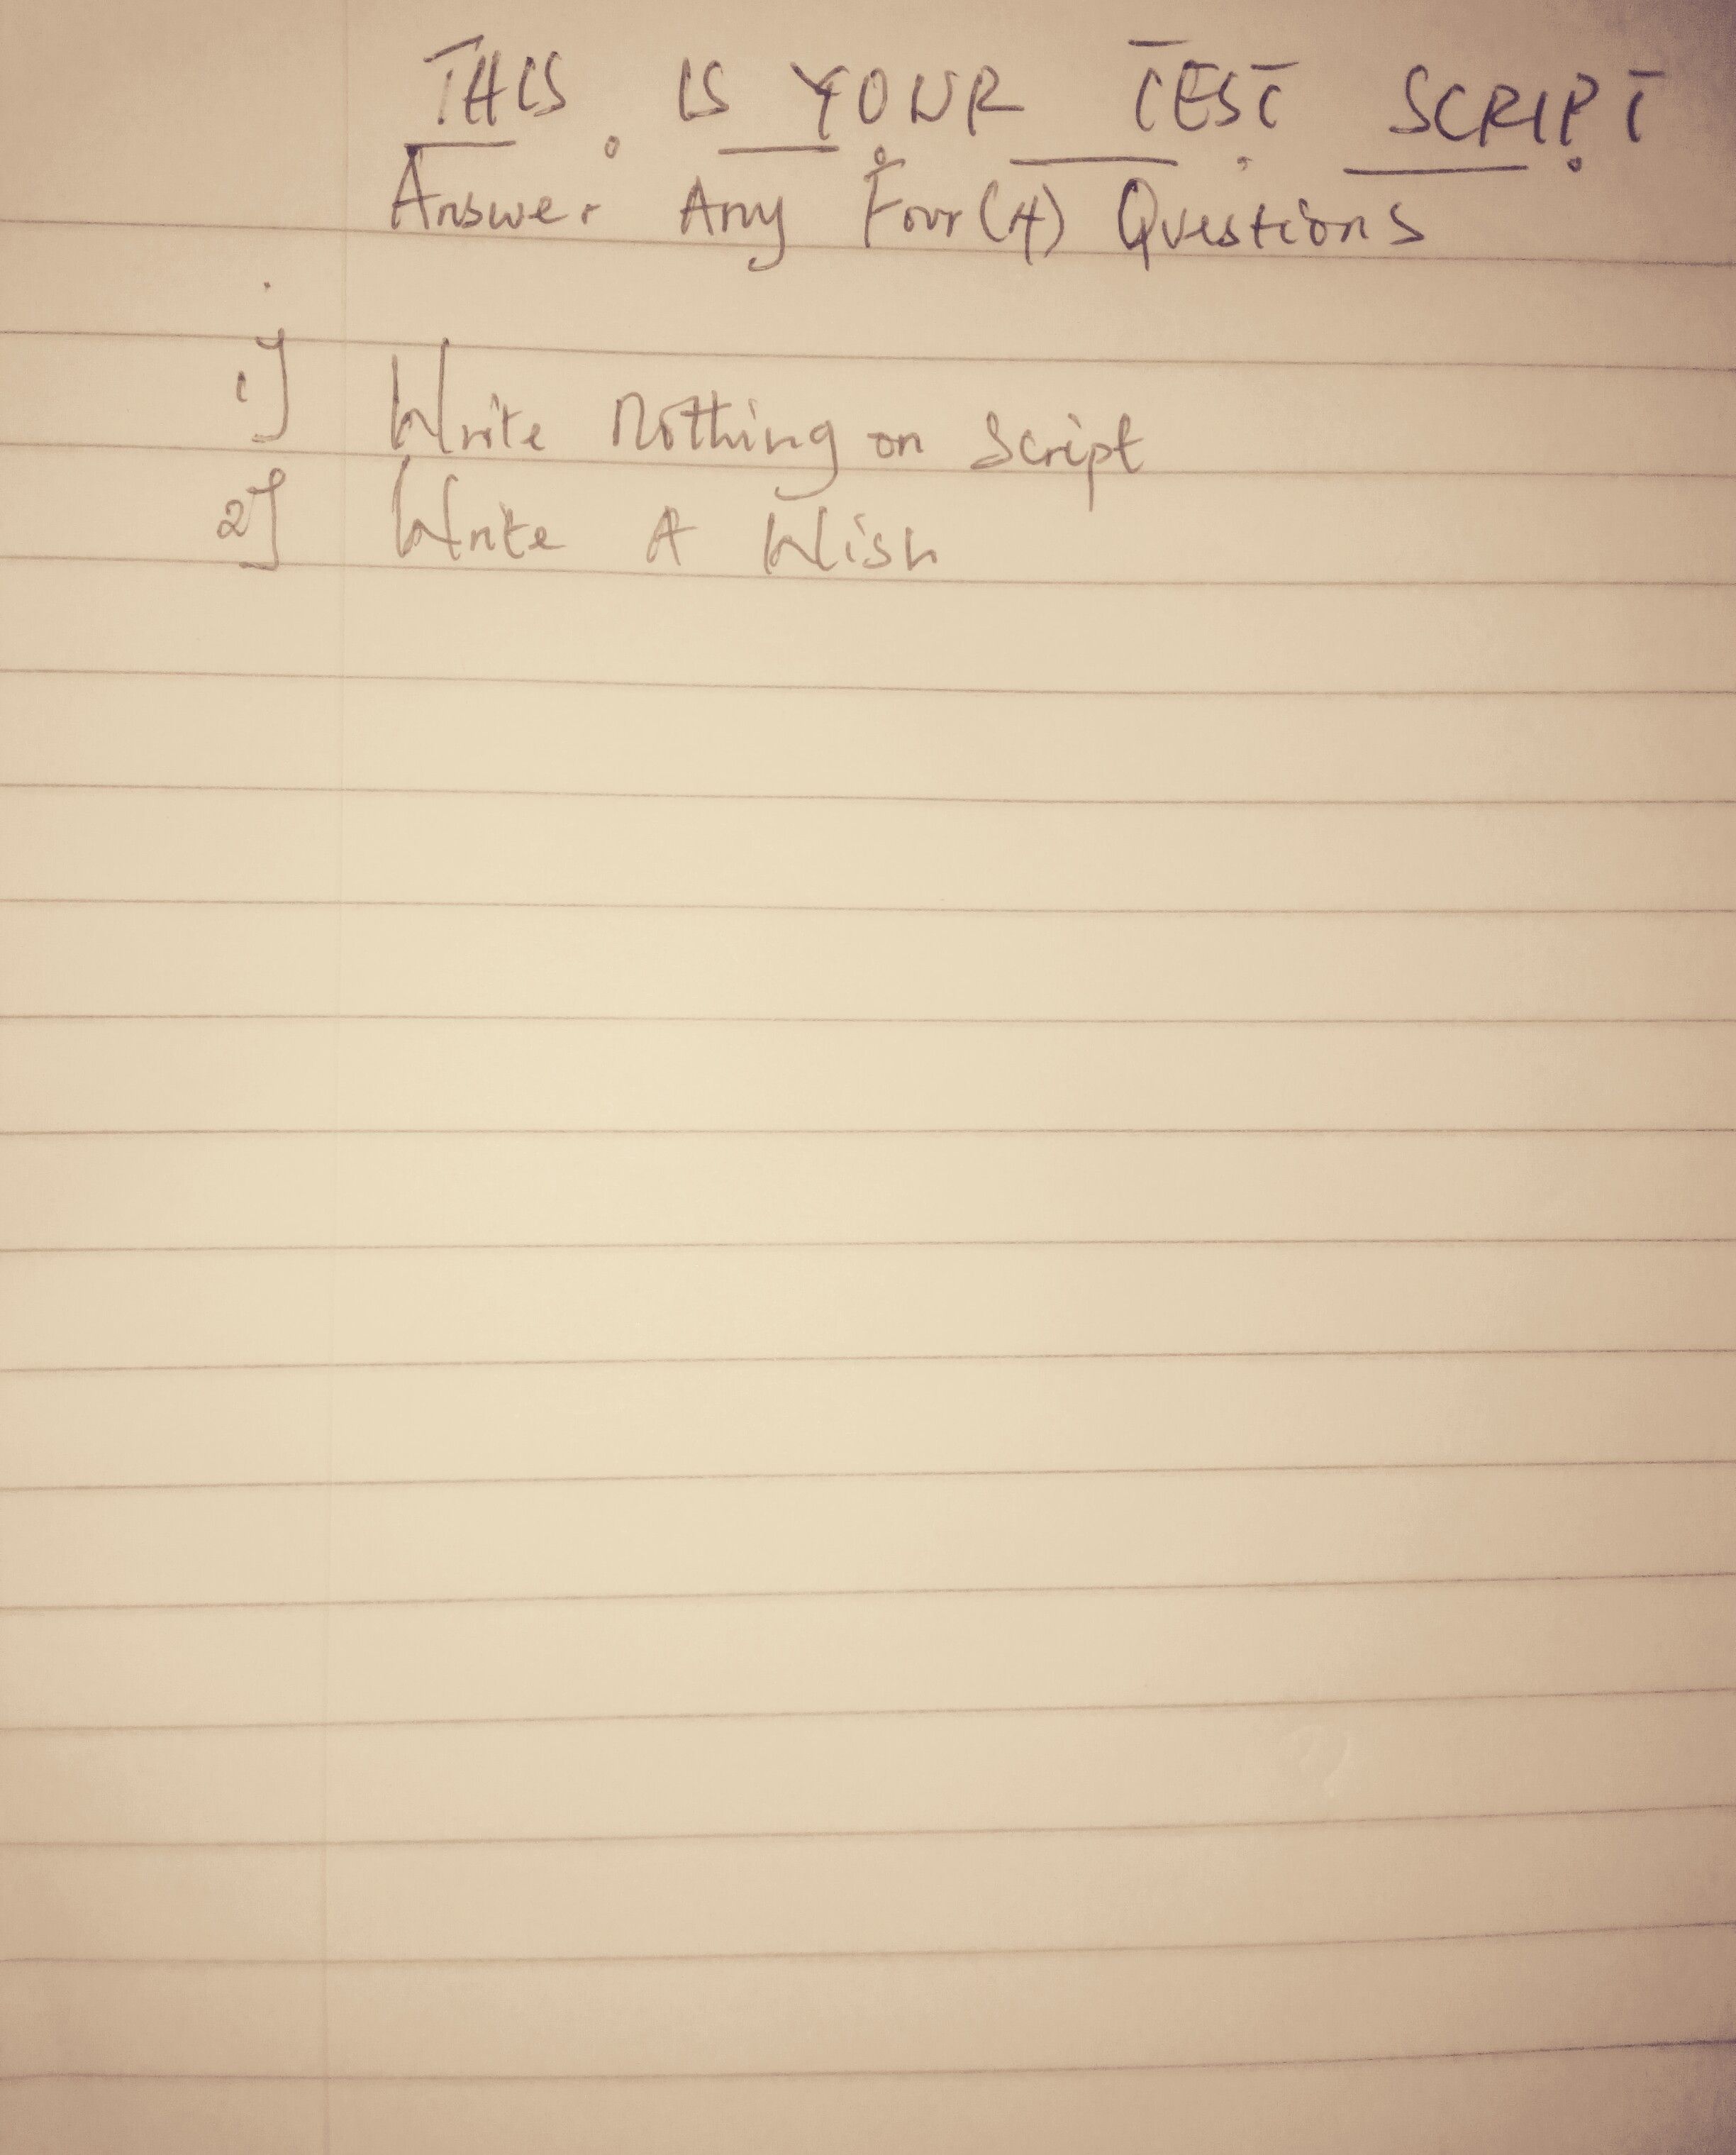 THIS IS YOUR TEST SCRIPT
Answer Any Four (4) Questions
1] Write Nothing on Script
2] Write A Wish